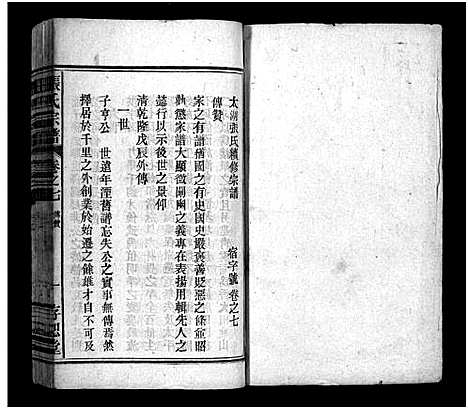 太湖張氏續修宗譜　宿字號　卷之七
傳贊
家之有譜猶國之有史國史嚴褒善貶惡之條並昭
勸懲家譜大顯微闡幽之義專在表揚用輯先人之
懿行以示後世之景仰
清乾隆戊辰外傳
一世
子亨公　世遠年湮舊譜忘失公之實事無傳焉然
擇居於千里之外創業於始遷之餘雄才自不可及
張氏宗譜
卷之七
傳贊
一